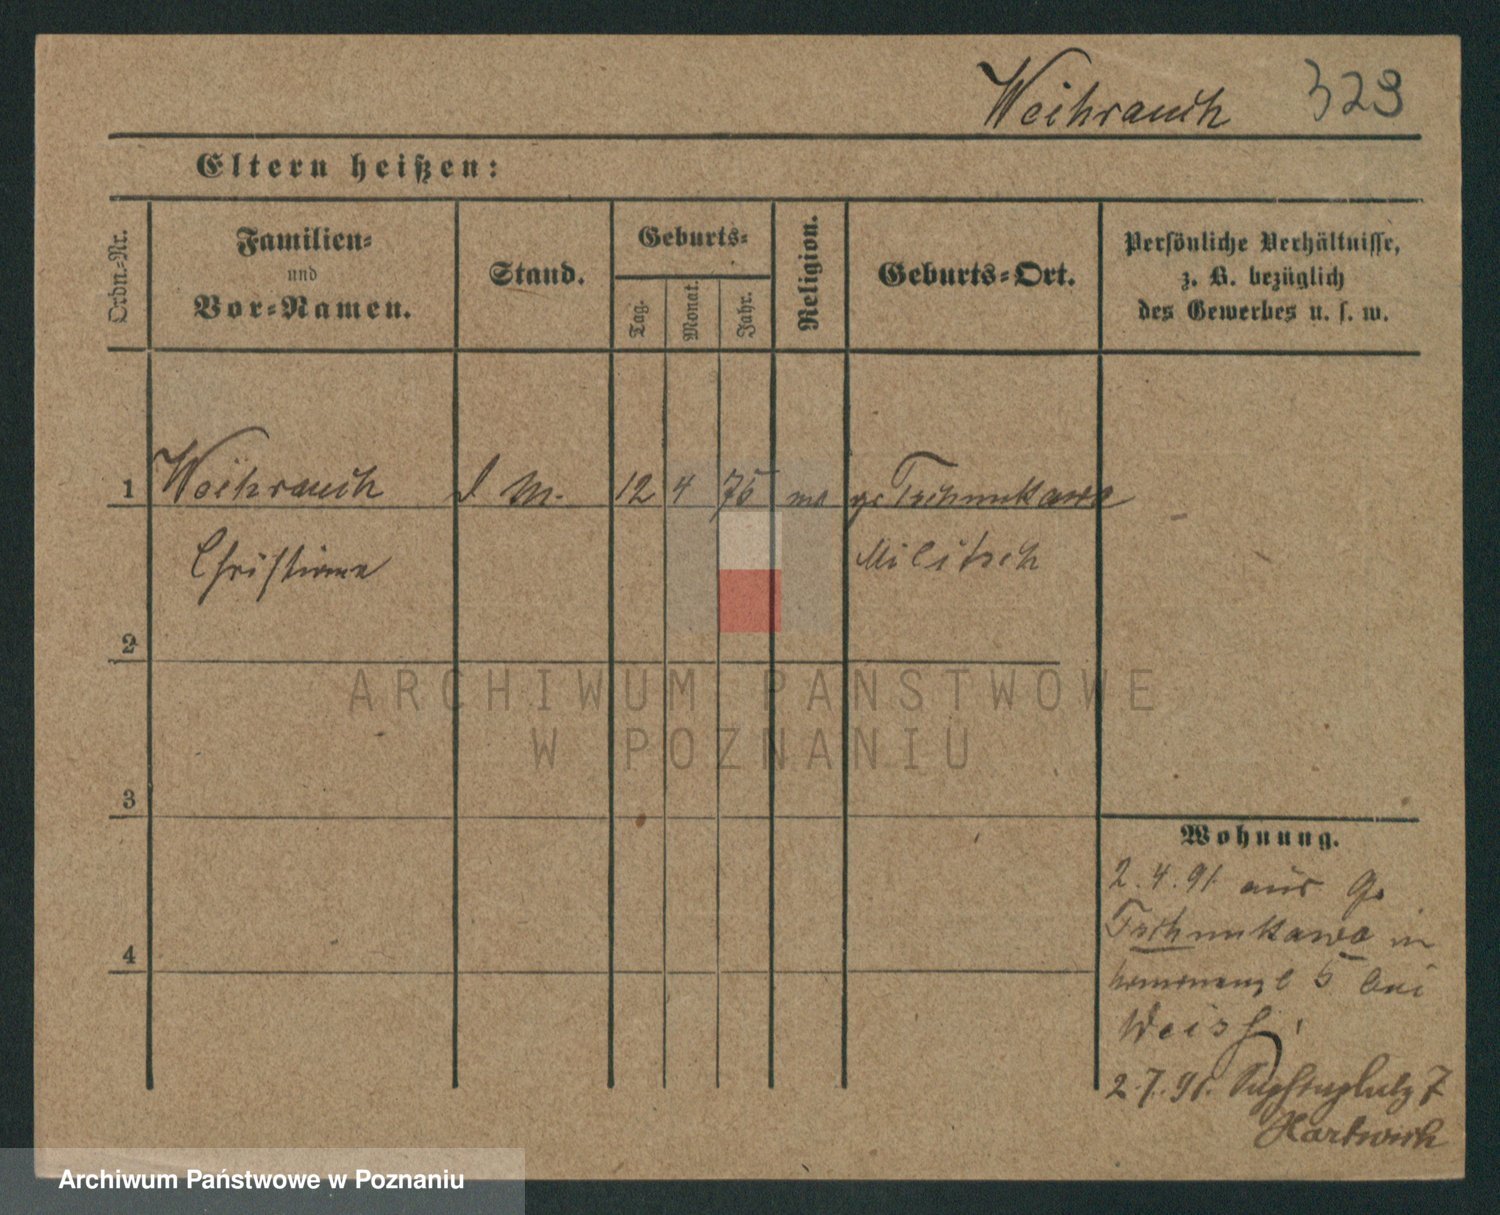 Weihrauch 323
Eltern heißen:
Ordn.-Nr.
Familien-
und
Vor-Namen.
Stand.
Geburts-
Tag.
Monat.
Jahr.
Religion.
Geburts-Ort.
Persönliche Verhältnisse,
z. B. bezüglich
des Gewerbes u. s. w.
1 Weihrauch d M. 12 4 75 Tschunkawe
Christiane Militsch
2
ARCHIWUM PAŃSTWOWE
W POZNANIU
3
Wohnung.
2.4.91 aus
Tschunkawe in
4
5 bei
Weiss
2.7.91. 7
Hartwich
Archiwum Państwowe w Poznaniu